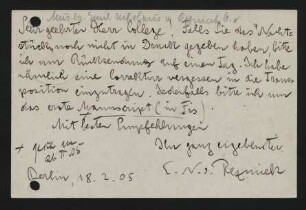 Sehr geehrter Herr College, Falls Sie das "Nachtstück"
noch nicht in Druck gegeben haben, bitte
ich um Rücksendung auf einen Tag. Ich habe
nämlich eine Correktur vergessen in die Trans-
position einzutragen. Jedenfalls bitte ich um
das erste Manuscript (in Fis)
Mit besten Empfehlungen
Ihr ganz ergebenster
E. N. v. Reznicek
Berlin, 18. 2. 05